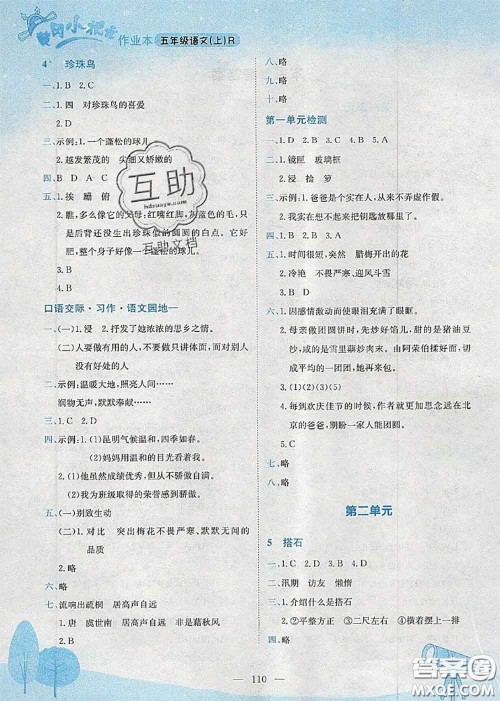 黄冈小状元
作业本 五年级语文(上)R
4* 珍珠鸟
一、1.B 2.B
二、1.四 对珍珠鸟的喜爱
2.B
三、示例:1.一个蓬松的球儿
2.越发繁茂的 尖细又娇嫩的
四、B D A C
五、1.挨 蹦 俯
2.瞧,多么像它的父母:红嘴红脚,灰蓝色的毛,只
是后背还没生出珍珠似的圆圆的白点。它好
肥,整个身子好像一个蓬松的球儿。
3.B
六、略
口语交际·习作·语文园地一
一、(一)1.浸 2.抒发了她浓浓的思乡之情。
(二)人要做有用的人,不要做只讲体面,而对别人
没有好处的人
二、示例:温暖大地,照亮人间……
润物无声,默默奉献……
三、1.C 2.D
四、示例:1.(1)昆明气候温和,四季如春。
(2)妈妈用温和的目光看着我。
2.(1)他虽然成绩优秀,但从不骄傲自大。
(2)我为班级取得的荣誉感到骄傲。
五、(一)别致生动
(二)1.对比 突出梅花不畏严寒、默默无闻的
品质
2.D
六、略
七、流响出疏桐 居高声自远
1.唐 虞世南 居高声自远 非是藉秋风
2.B
八、略
第一单元检测
一、1.D 2.B 3.D 4.A 5.C
二、1.镜匣 玻璃框
2.浸 捡 箩
三、示例:1.爸爸是个实在人,从来不弄虚作假。
2.我实在想不起来把钥匙放哪里了。
四、略
五、1.时间 季节 突然 腊梅开出的花
2.冷艳 不畏严寒 迎风斗雪
3.D
六、1.因感情激动而使眼泪充满了眼眶。
2.我参与做团圆饼时,先炒好馅儿,甜的是猪油豆
沙,咸的是雪里蕻炒肉末。再由阿荣伯揉好面,切
成两半,一半是甜的
3.(1)(2)(3)(5)
4.每到欢庆佳节的时候,我就会更加思念远在北
京的爸爸,别盼一家人能团圆。
5.C
七、略
八、略
第二单元
5 搭石
一、1.C 2.D 3.A 4.D
二、汛期 访友 懒惰
三、1.介绍什么是搭石
2.①平整方正 ②二尺左右 ④横着摆上一排
四、略
互助
互助文档
110
答案圈
MXQE.COM